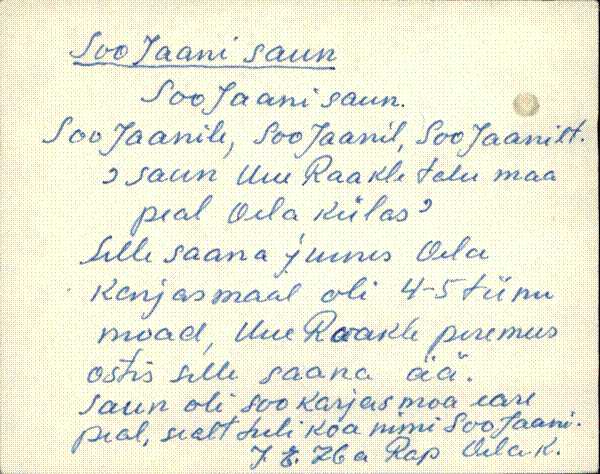 Soo Jaani saun
Soo Jaani saun.
Soo Jaanile, Soo Jaanil, Soo Jaanilt.
) saun Uue Raakle talu maa
peal Oela külas )
Selle saana juures Oela
karjasmaal oli 4-5 tiinu
moad, Uue Raakle peremes
ostis selle saana ää.
Saun oli soo karjasmoa eare
peal, sealt tuli koa nimi Soo Jaani.
76 a Rap Oela k.